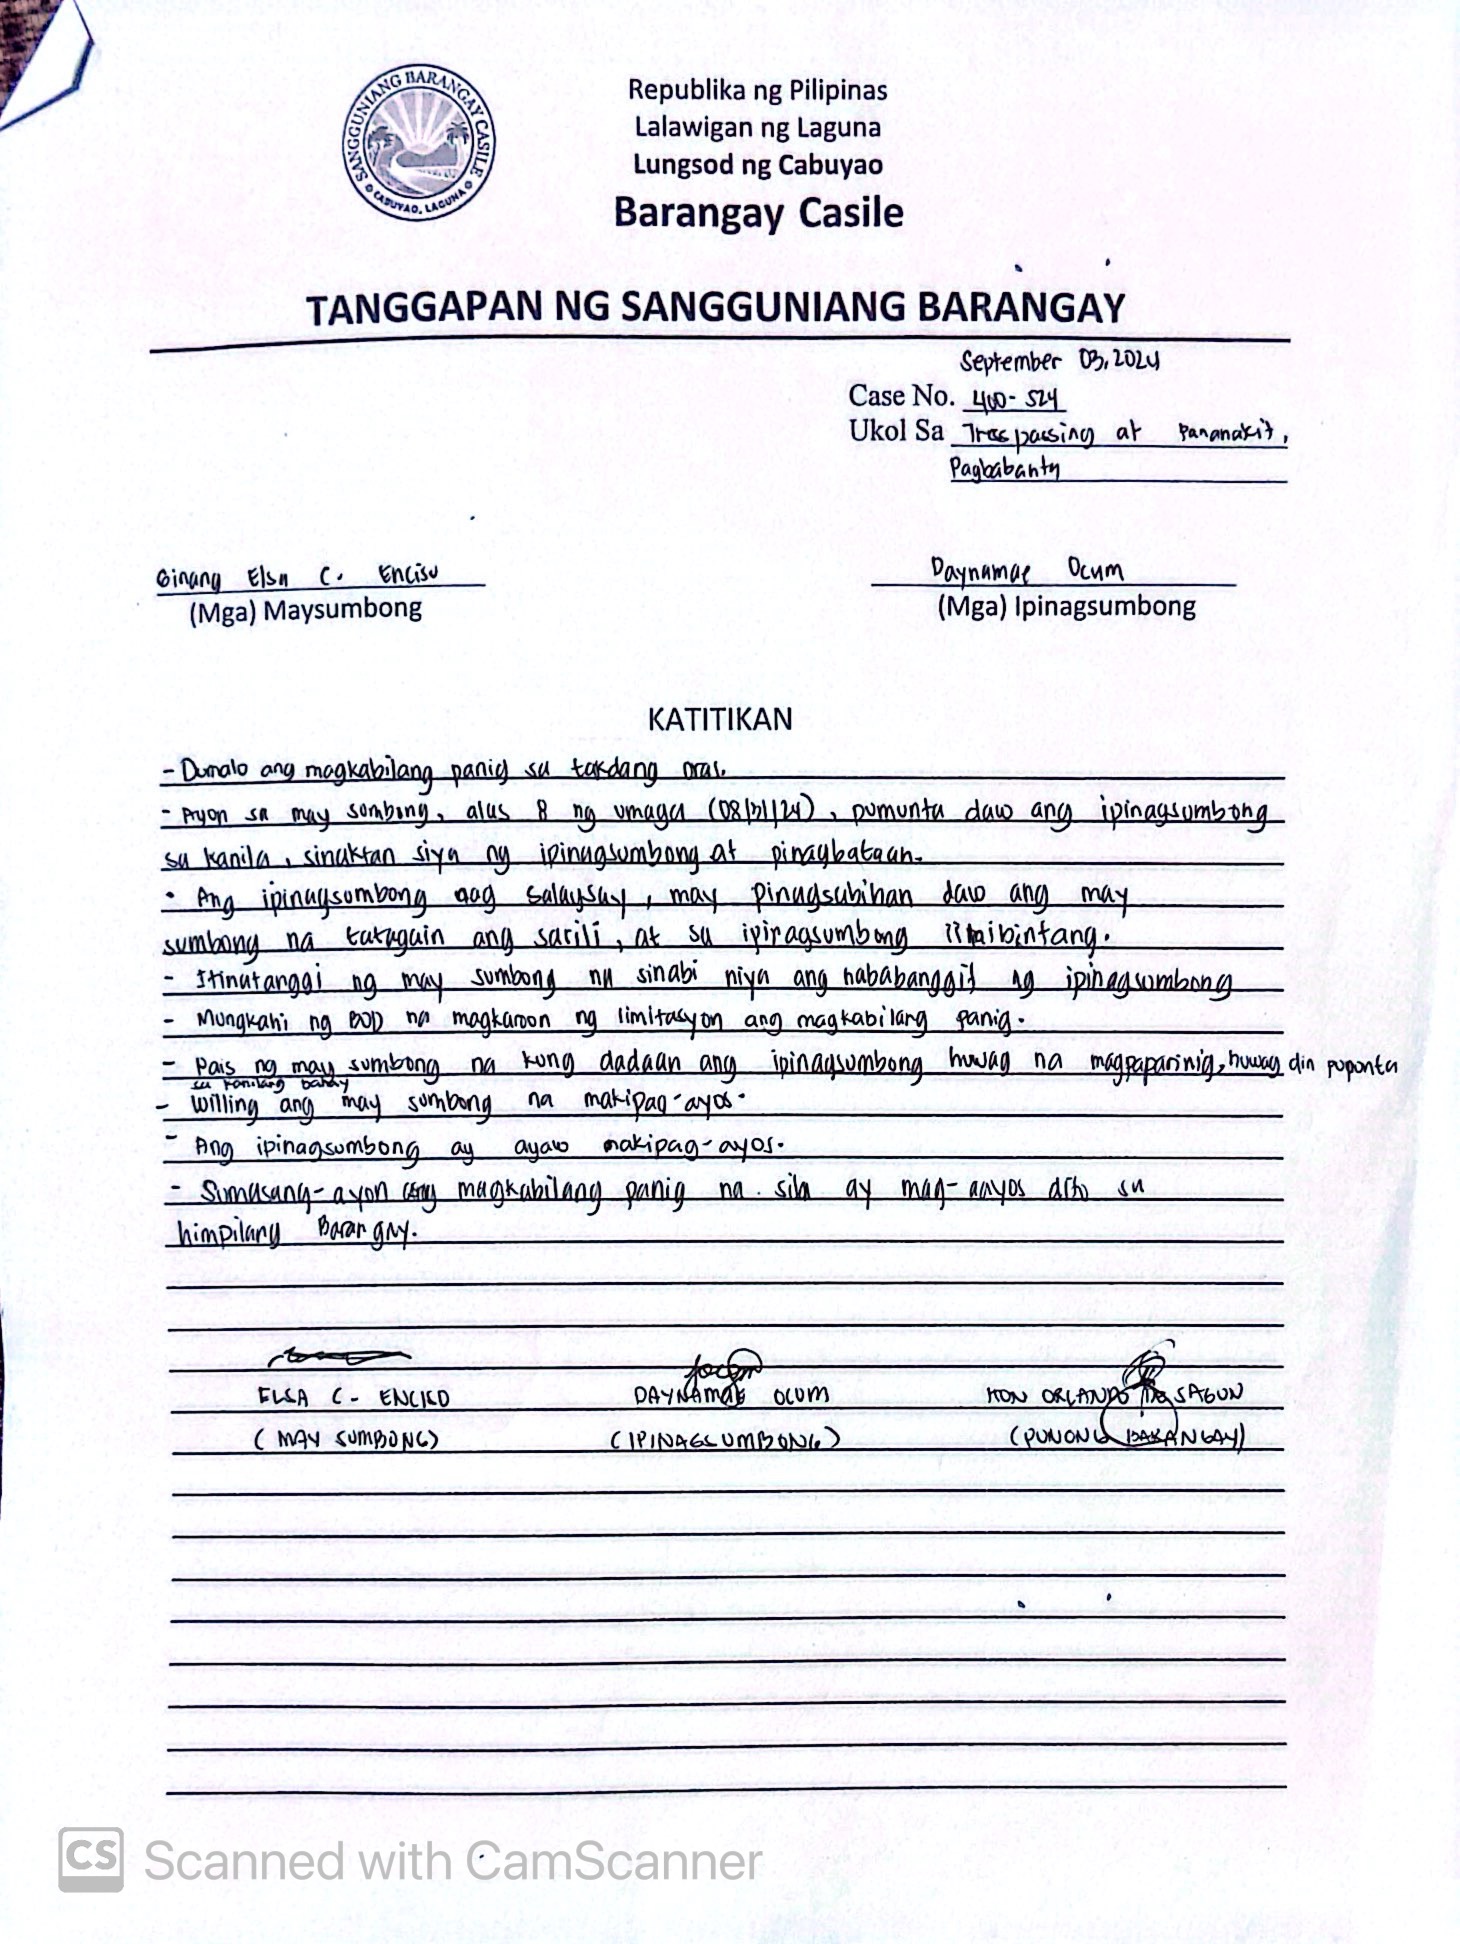 SANGGUNIANG BARANGAY CASILE
CABUYAO, LAGUNA
Republika ng Pilipinas
Lalawigan ng Laguna
Lungsod ng Cabuyao
Barangay Casile
TANGGAPAN NG SANGGUNIANG BARANGAY
September 03, 2024
Case No. 400-524
Ukol Sa Trespassing at Pananakit,
Pagbabanta
Ginang Elsa C. Enciso
Daynamae Ocum
(Mga) Maysumbong
(Mga) Ipinagsumbong
KATITIKAN
- Dumalo ang magkabilang panig sa takdang oras.
- Ayon sa may sumbong, alas 8 ng umaga (08/31/24), pumunta daw ang ipinagsumbong
sa kanila, sinaktan siya ng ipinagsumbong at pinagbataan.
- Ang ipinagsumbong nag salaysay, may pinagsabihan daw ang may
sumbong na tatagain ang sarili, at sa ipinagsumbong ibibintang.
- Itinatanggi ng may sumbong na sinabi niya ang nababanggit ng ipinagsumbong
- Mungkahi ng BOD na magkaroon ng limitasyon ang magkabilang panig.
- Pais ng may sumbong na kung dadaan ang ipinagsumbong huwag na magpaparinig, huwag din puponta
sa kanilang bahay
- Willing ang may sumbong na makipag-ayos.
- Ang ipinagsumbong ay ayaw makipag-ayos.
- Sumasang-ayon ang magkabilang panig na sila ay mag-aayos dito sa
himpilang Barangay.
ELSA C. ENCISO
DAYNAMAE OCUM
HON ORLANDO SAGUN
(MAY SUMBONG)
(IPINAGSUMBONG)
(PUNONG BARANGAY)
CS Scanned with CamScanner